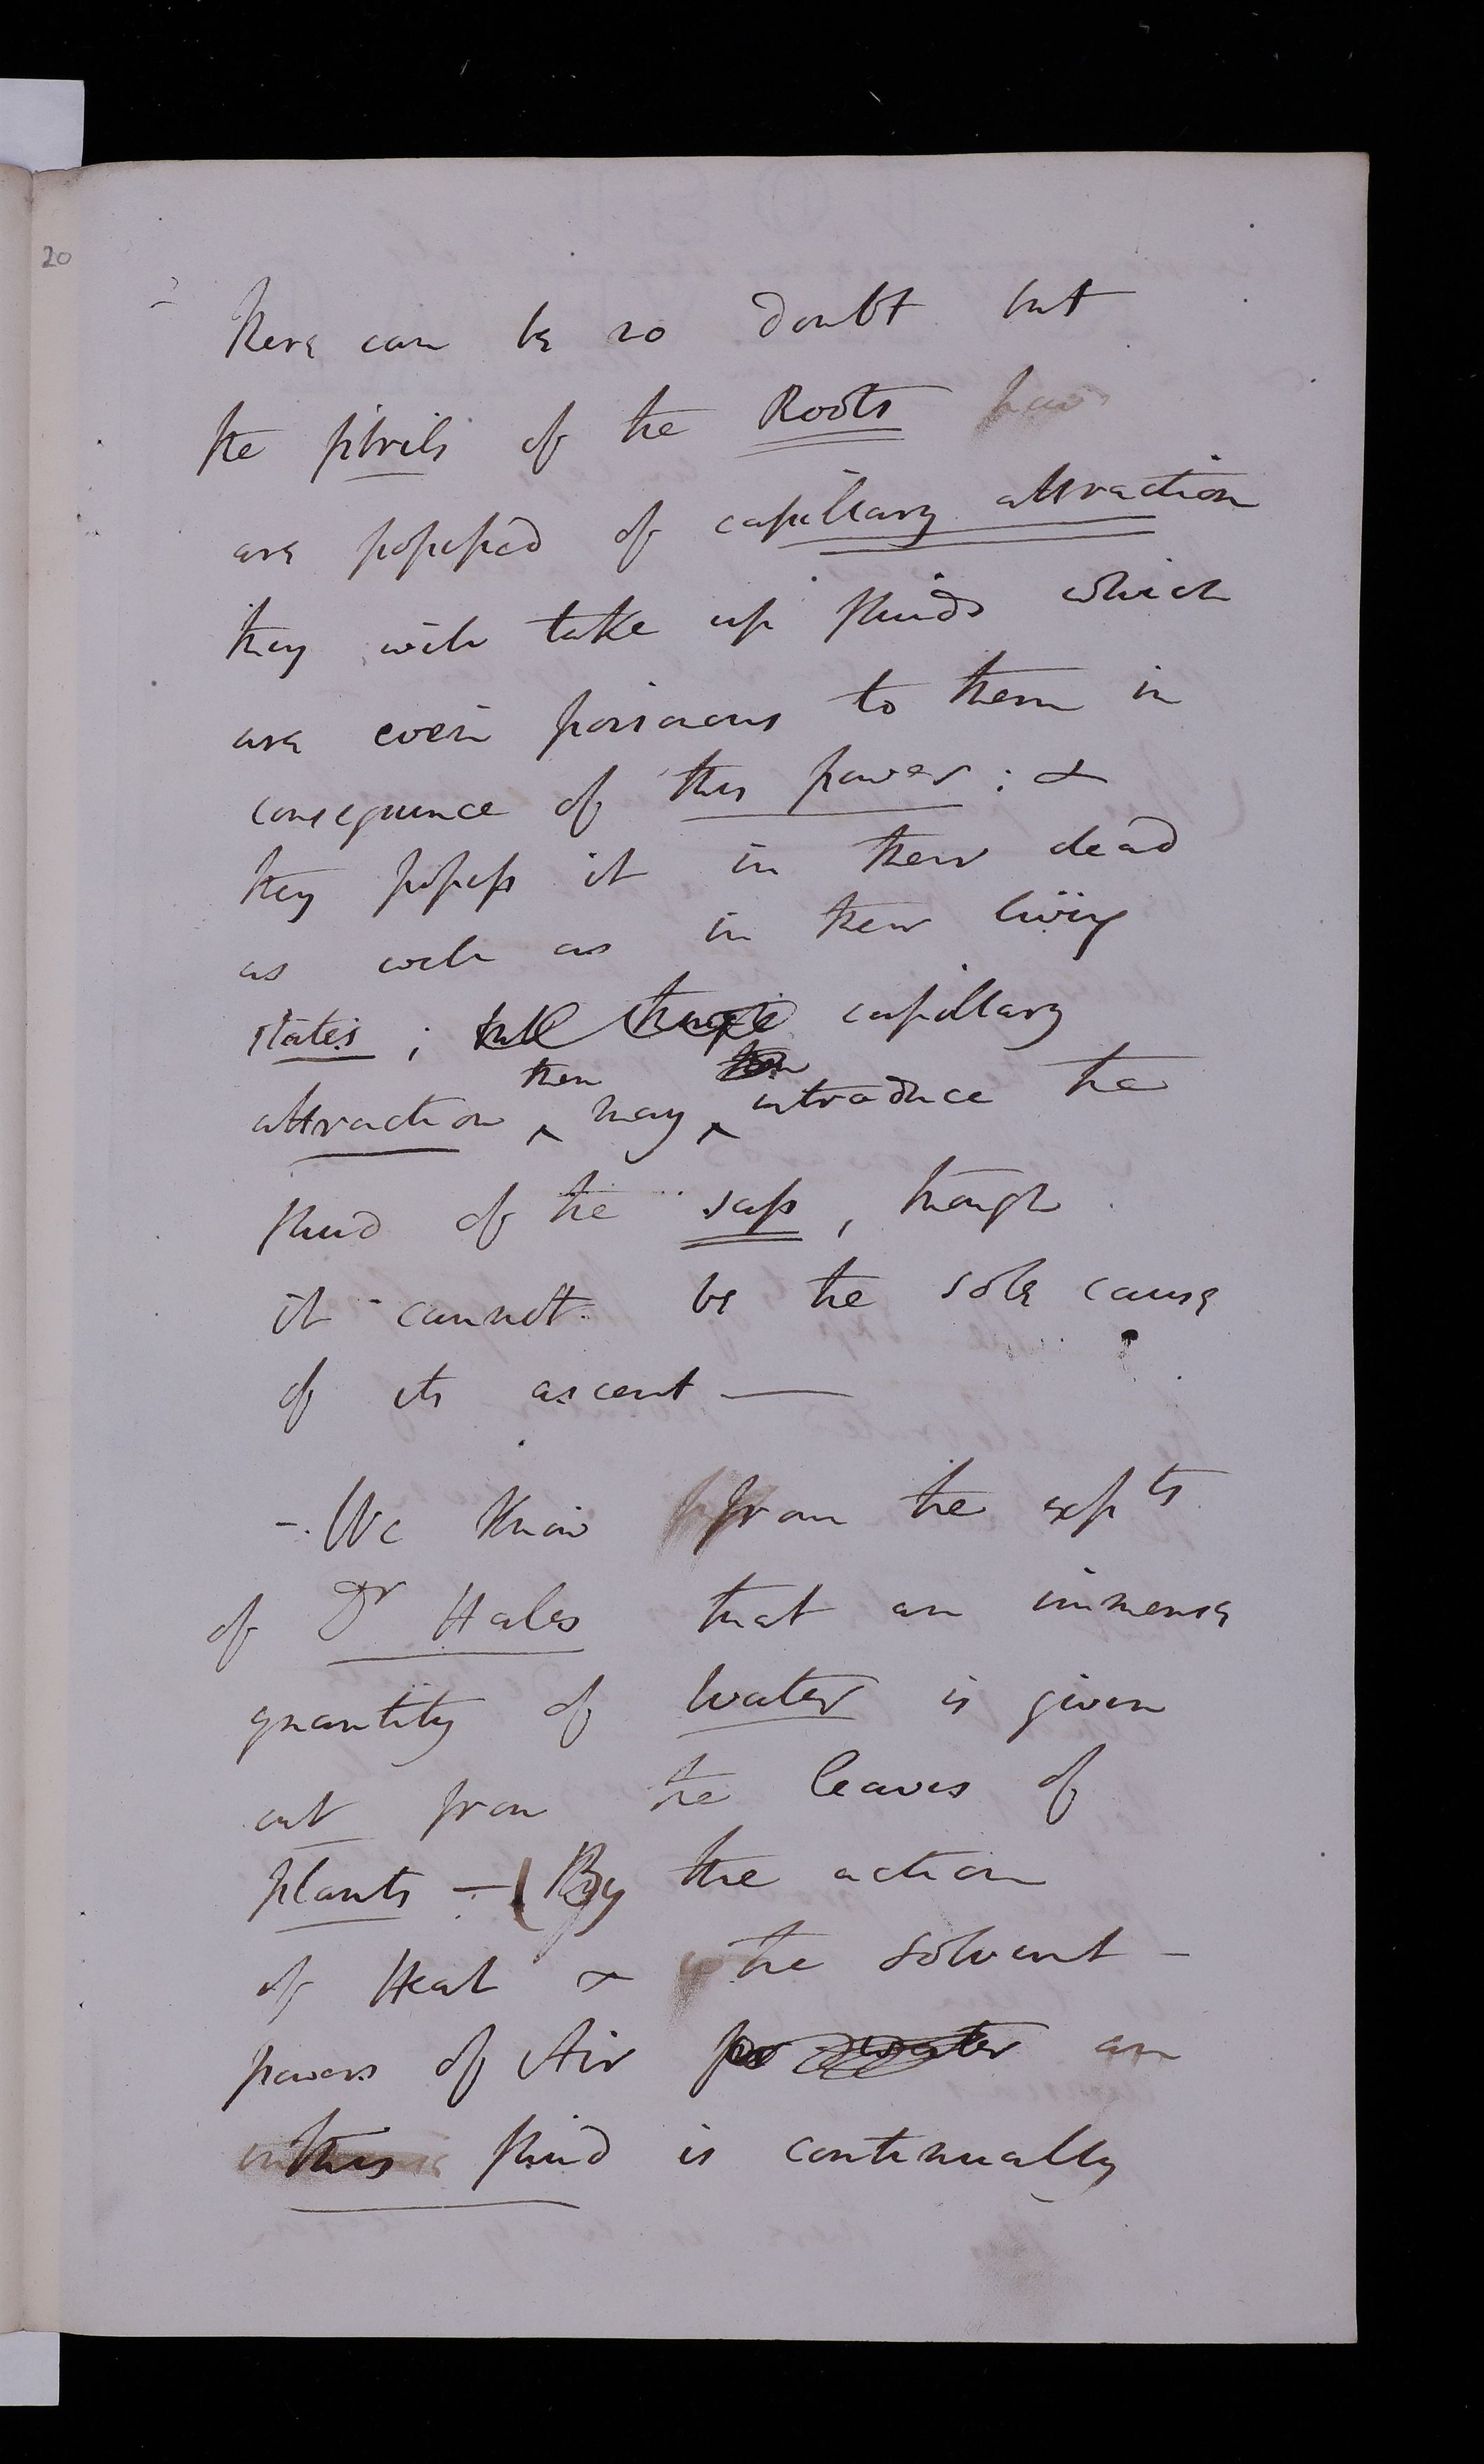 20
- There can be no doubt but
the fibrils of the Roots have
are possessed of capillary attraction
they will take up fluids which
are even poisonous to them in
consequence of this power: &
they possess it in their dead
as well as in their living
states; but though capillary
then then
attraction ^ may ^ introduce the
fluid of the sap, though
it cannot be the sole cause
of its ascent —
-. We know from the expts
of Dr Hales that an immense
quantity of water is given
out from the leaves of
plants - (By the action
of Heat & the solvent -
powers of Air for water an
this fluid is continually